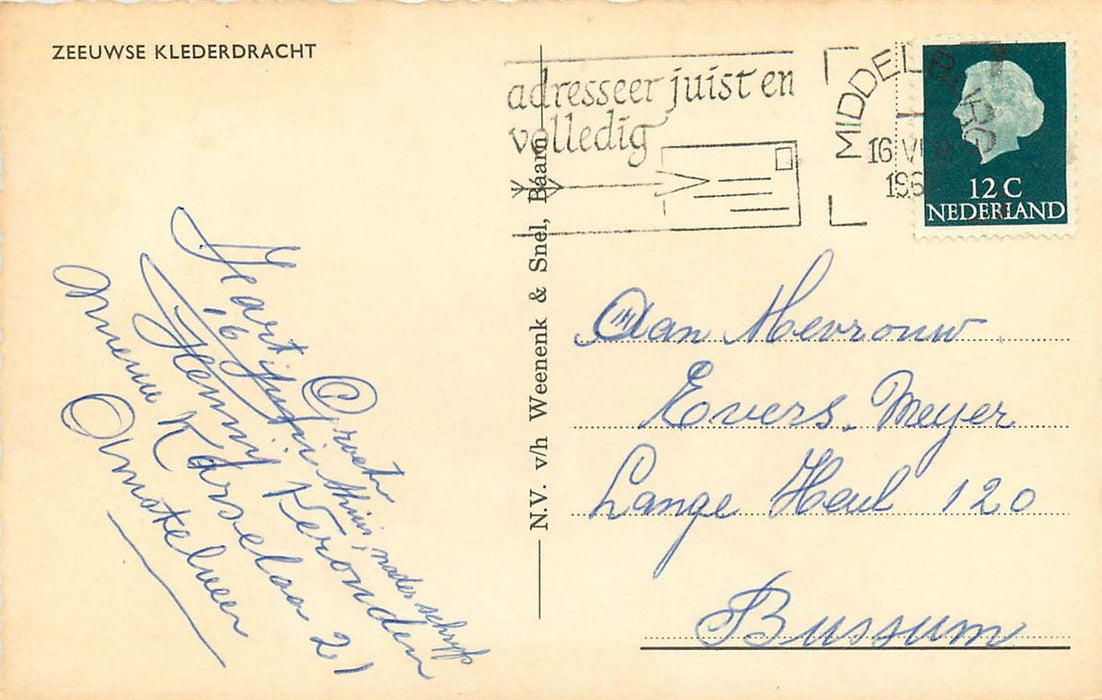 ZEEUWSE KLEDERDRACHT
adresseer juist en
volledig
MIDDELBURG
16 VI
196
12 C
NEDERLAND
N.V. v/h Weenenk & Snel, Baarn
Aan Mevrouw
Evers. Meyer
Lange Heul 120
Bussum
Hart
Groet
16 Juli thuis, nader schryf
Henny
Karselaan 21
Amstelveen